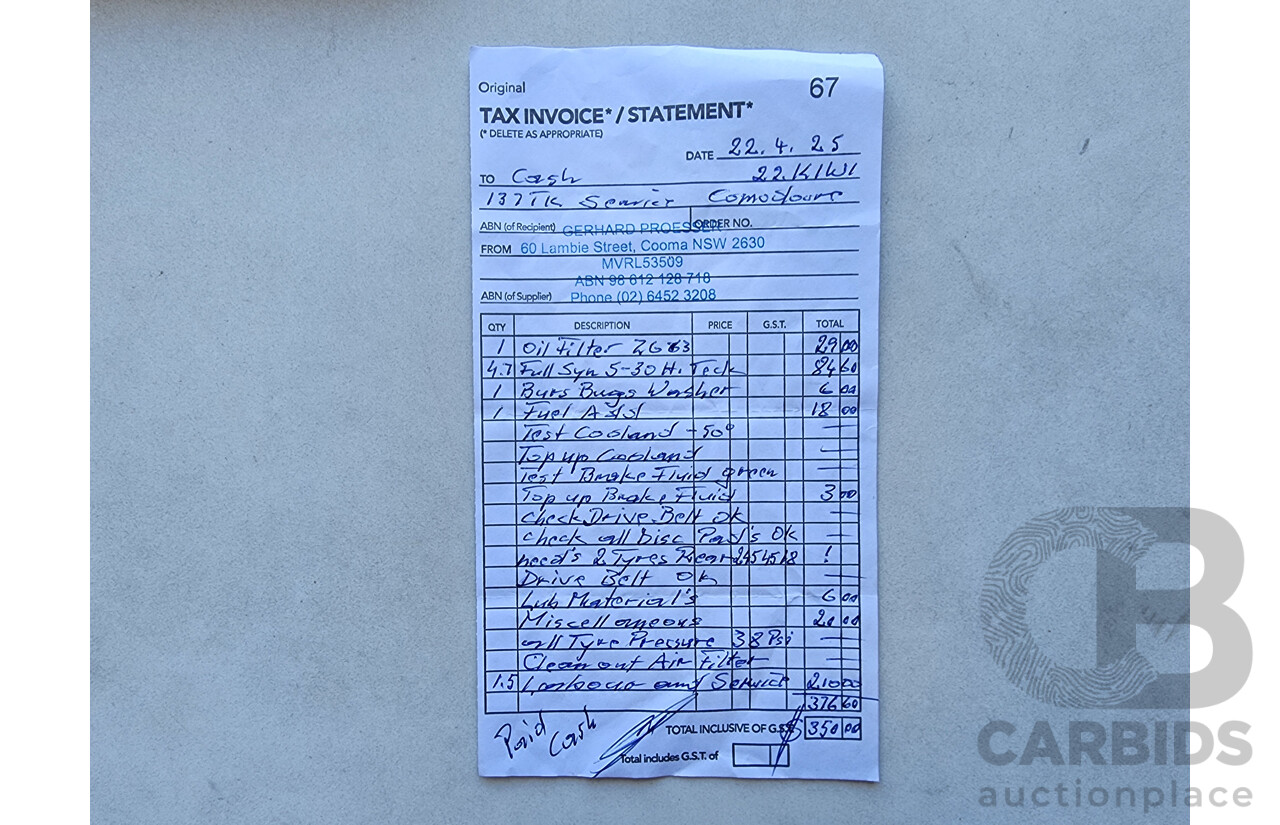 Original
67
TAX INVOICE* / STATEMENT*
(* DELETE AS APPROPRIATE)
DATE 22.4.25
TO Cash 22.KIWI
137TK Service Comodoure
ABN (of Recipient) GERHARD PROESSER ORDER NO.
FROM 60 Lambie Street, Cooma NSW 2630
MVRL53509
ABN 98 612 128 718
ABN (of Supplier) Phone (02) 6452 3208
QTY DESCRIPTION PRICE G.S.T. TOTAL
1 Oil Filter 29 00
4.7 Full Syn 5-30 Hi Teck 84 60
1 Burs Bugs Washer 6 00
1 Fuel 18 00
Test Cooland -50° —
Top up Cooland —
Test Brake Fluid green —
Top up Brake Fluid 3 00
check Drive Belt OK —
check all Disc Pad's OK —
need's 2 Tyres Rear 2454518 !
Drive Belt OK —
Lub Material's 6 00
Miscellaneous 20 00
all Tyre Pressure 38 Psi —
Clean out Air Filter —
1.5 Labour and Service 210 00
376 60
Paid Cash
TOTAL INCLUSIVE OF G.S.T. $ 350 00
Total includes G.S.T. of
CB
CARBIDS
auctionplace